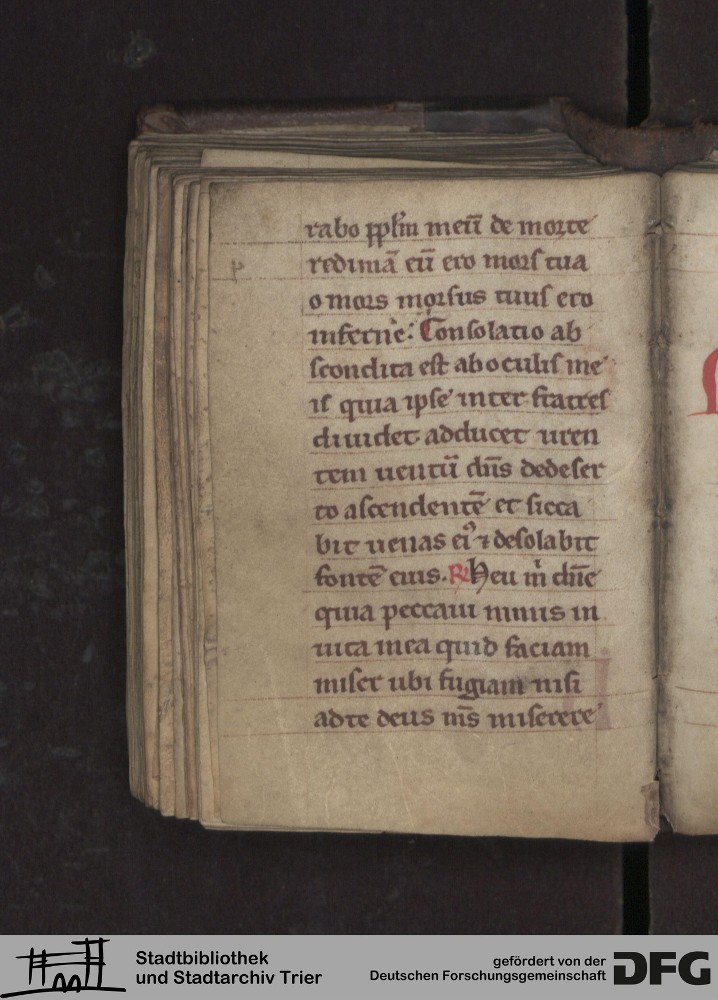 rabo pplm̄ meū de morte
redimā eū ero morſ tua
o mors morſus tuuſ ero
inferne. Conſolatio ab
ſcondita eſt ab oculiſ me
iſ quia ipſe inter fratreſ
diuidet adducet uren
tem uentū dn̄s de deſer
to aſcendentē et ſicca
bit uenas ei⁹ ⁊ deſolabit
fontē eius. R Heu m̄ dn̄e
quia peccaui nimis in
uita mea quid faciam
miſer ubi fugiam niſi
ad te deus m̄s miſerere
Stadtbibliothek
und Stadtarchiv Trier
gefördert von der
Deutschen Forschungsgemeinschaft
DFG